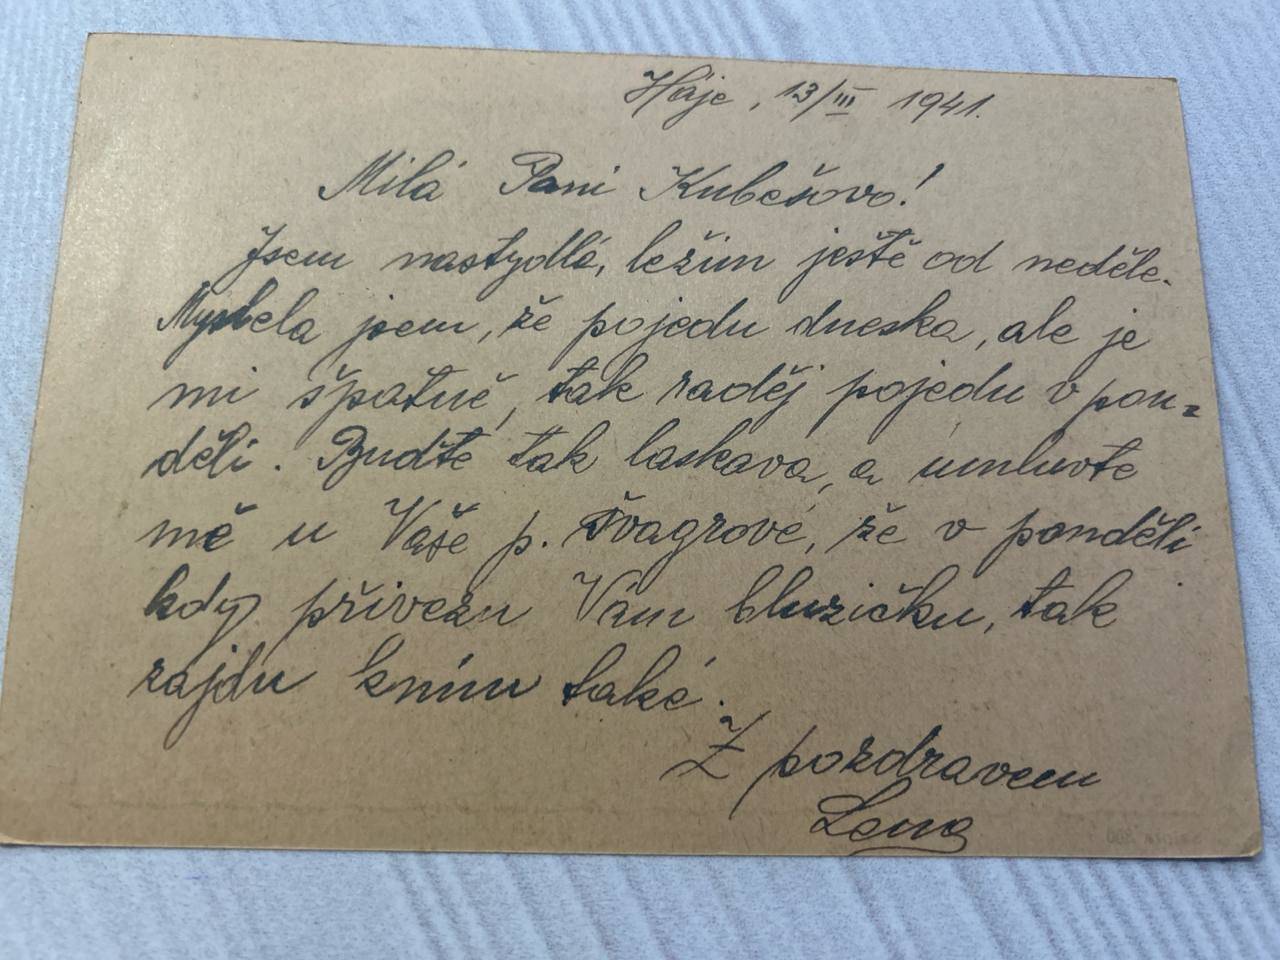 Háje, 13/III 1941.
Milá Pani Kubešovo!
Jsem nastydlá, ležim ještě od neděle.
Myslela jsem, že pojedu dneska, ale je
mi špatně, tak raděj pojedu v pon=
děli. Buďte tak laskava, a umluvte
mě u Vaše p. švagrové, že v ponděli
kdy přivezu Vám bluzičku, tak
zajdu knim také.
Z pozdravem
Lena